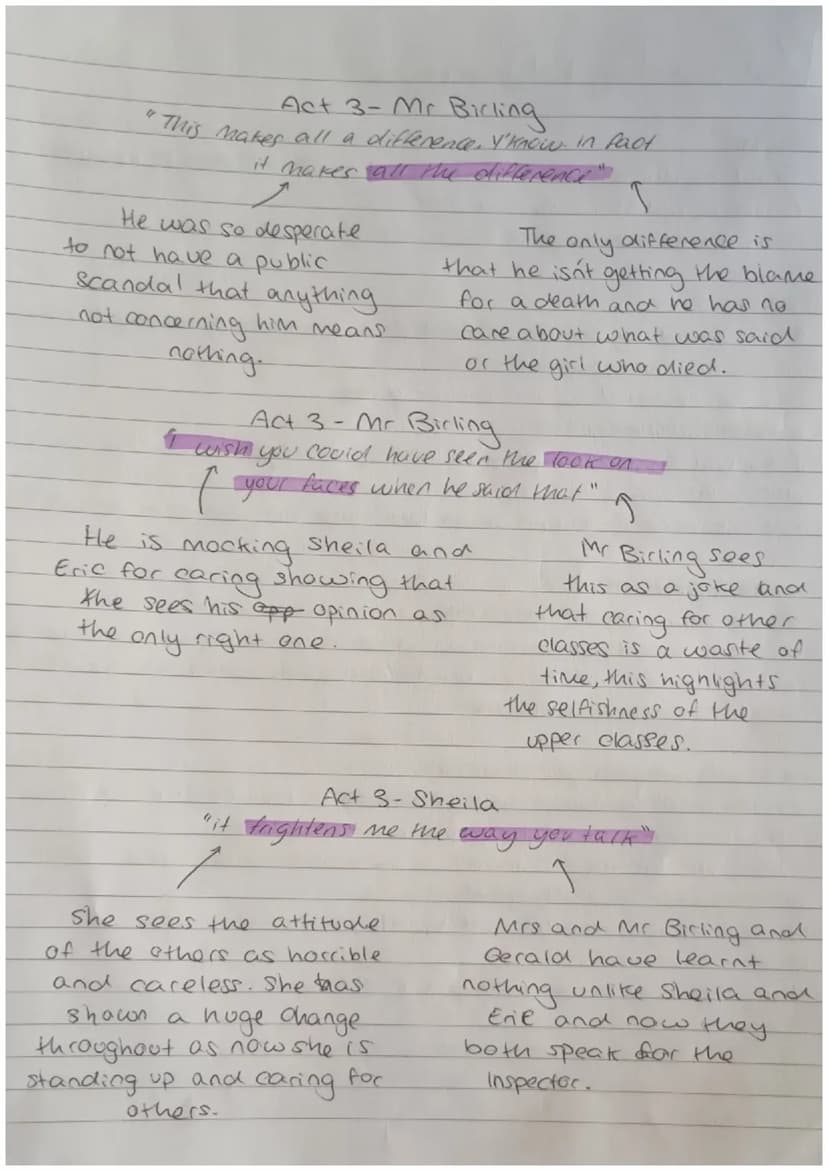 Act 3 - Mr Birling
"This makes all a difference, Y'know. in fact
it makes all the difference"
He was so desperate
to not have a public
scandal that anything
not concerning him means
nothing.
The only difference is
that he isn't getting the blame
for a death and he has no
care about what was said
or the girl who died.
Act 3 - Mr Birling
"I wish you could have seen the look on
your faces when he said that"
He is mocking Sheila and
Eric for caring showing that
he sees his opinion as
the only right one.
Mr Birling sees
this as a joke and
that caring for other
classes is a waste of
time, this highlights
the selfishness of the
upper classes.
Act 3 - Sheila
"it frightens me the way you talk"
She sees the attitude
of the others as horrible
and careless. She has
shown a huge change
throughout as now she is
standing up and caring for
others.
Mrs and Mr Birling and
Gerald have learnt
nothing unlike Sheila and
Eric and now they
both speak for the
Inspector.